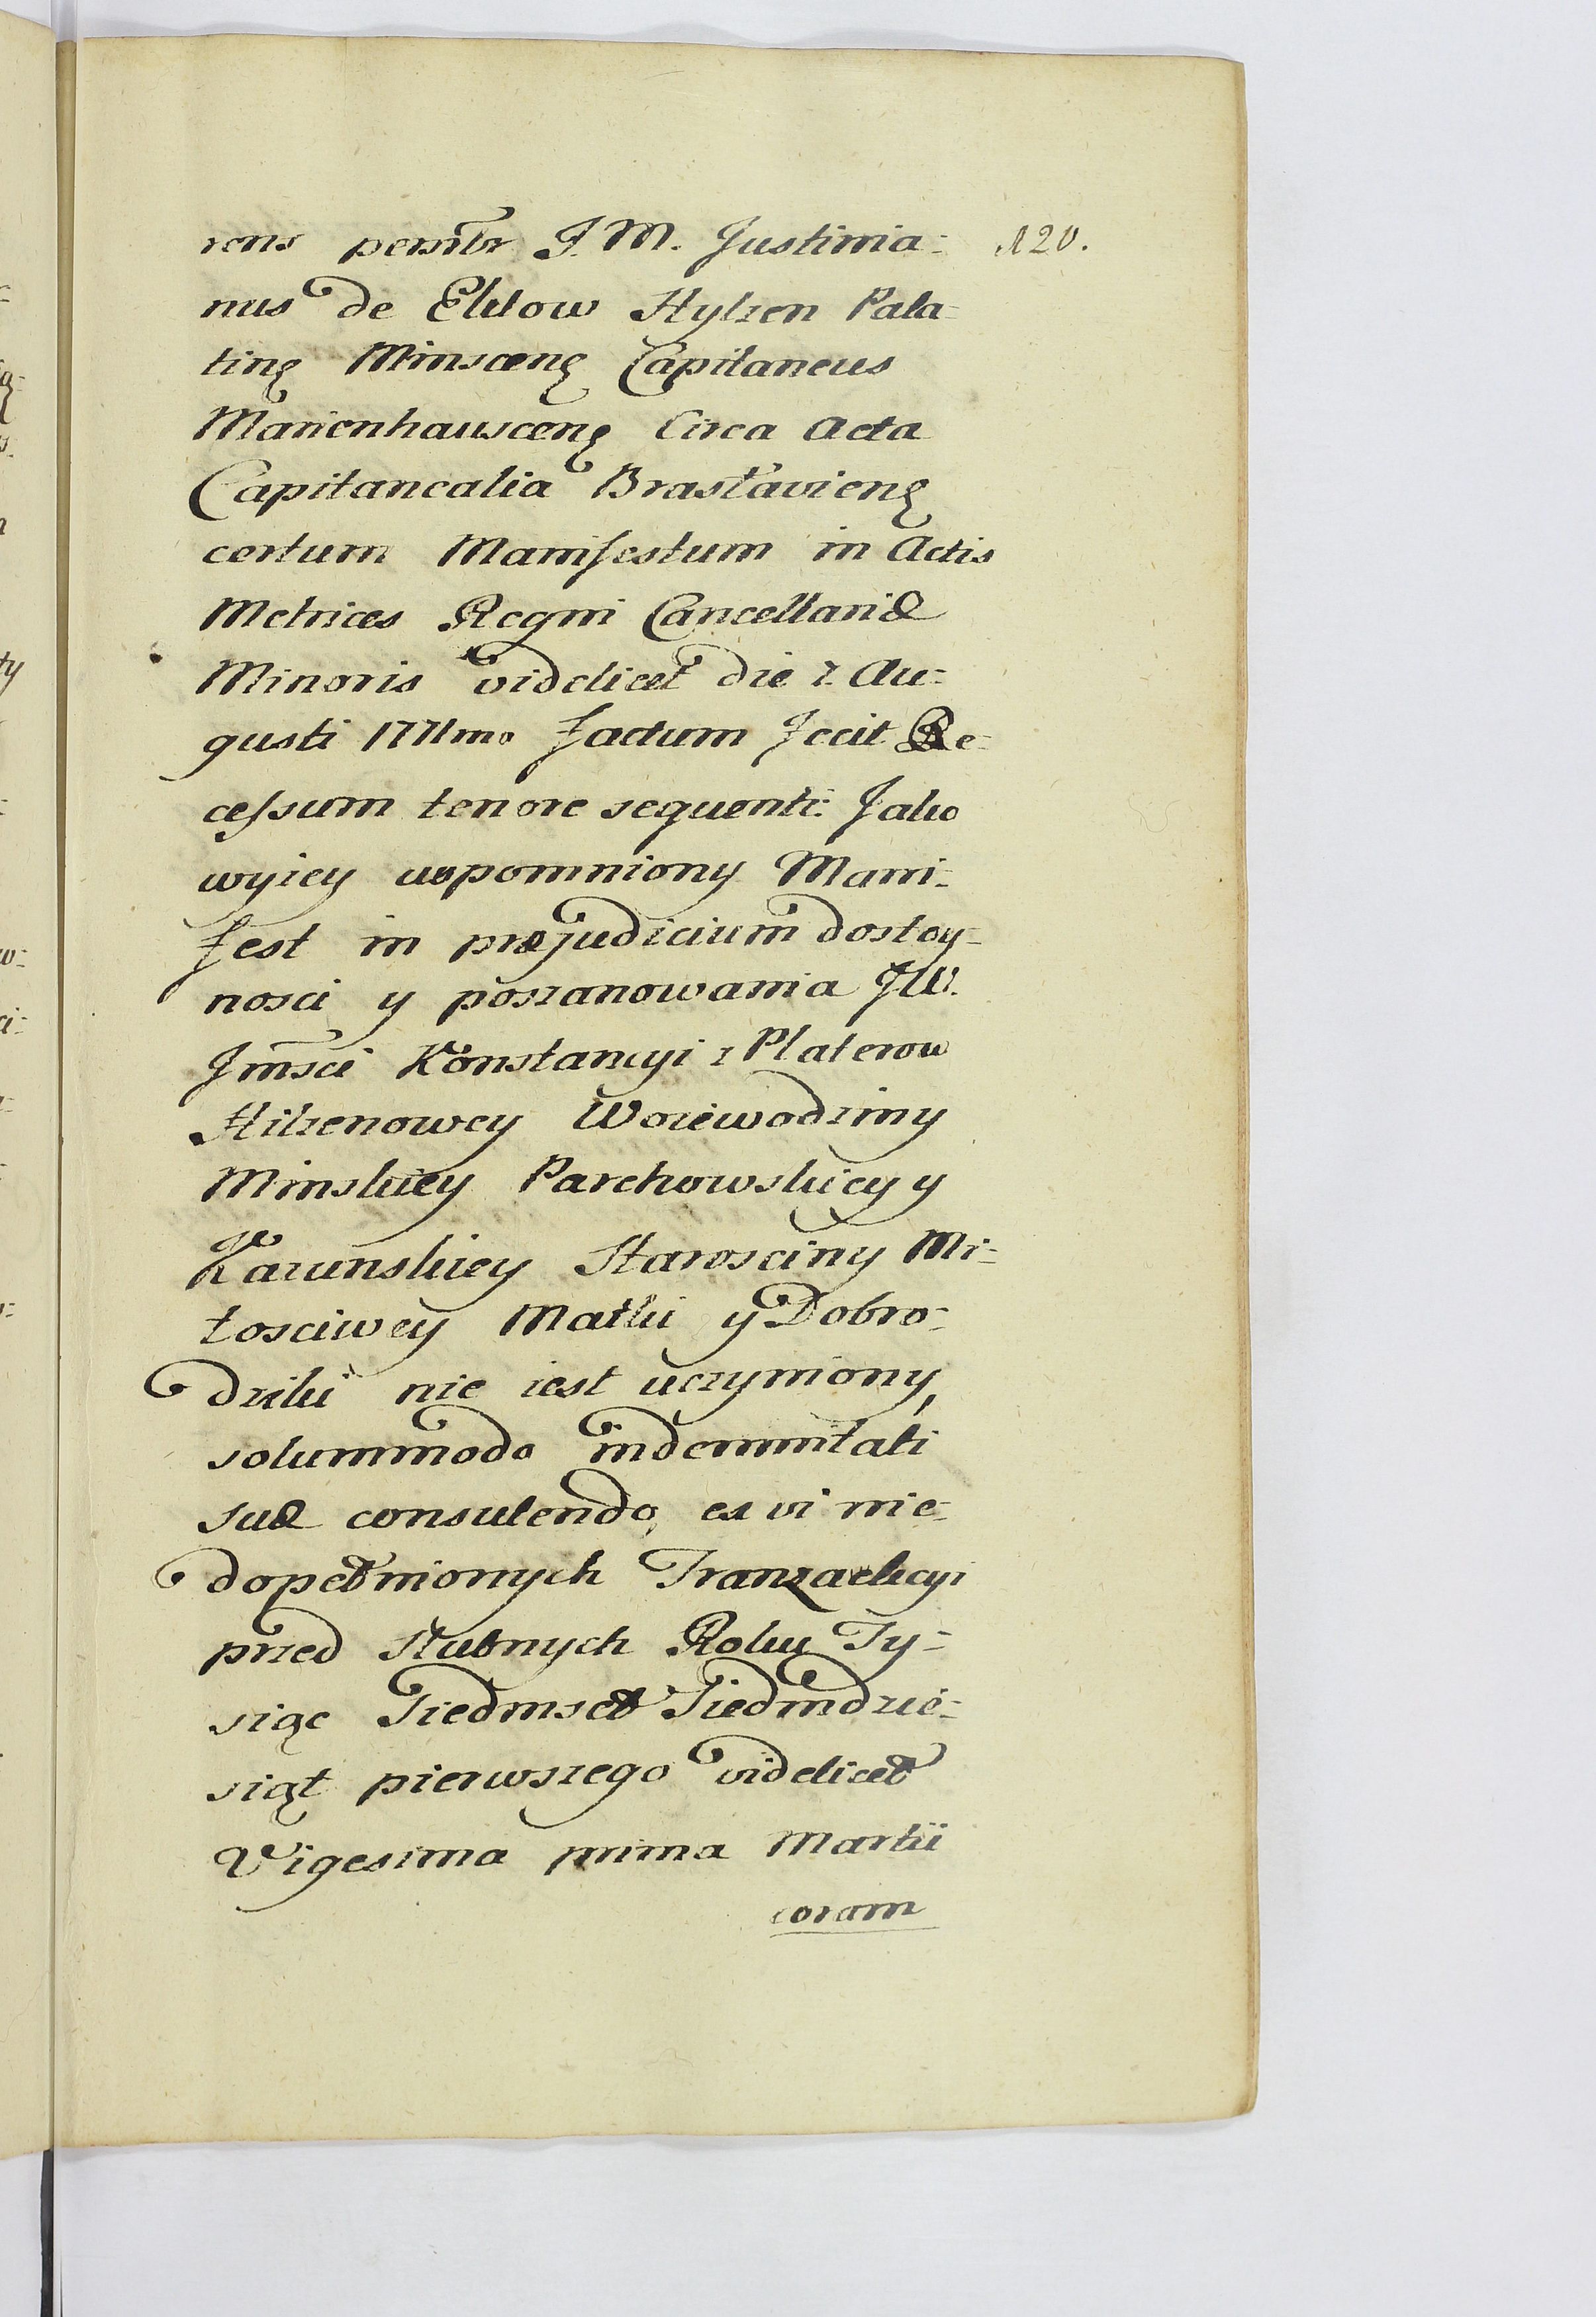 rens personlr J. M. Justinia= 120.
nus de Eklow Hylzen Pala=
ting Minsceng Capitaneus
Marienhausceng Circa Acta
Capitanealia Brasłavieng
certum Manifestum in Actis
Metrices Regni Cancellariæ
Minoris videlicet die 7. Au=
gusti 1771mo factum fecit Re=
cessum tenore sequenti: Jako
wyżey wspomniony Mani=
fest in præjudicium dostoy=
nosci y poszanowania JW.
Jmsci Konstancyi z Platerow
Hilzenowey Woiewodziny
Minskiey Parchowskiey y
Kazunskiey Starosciny Mi=
łosciwey Matki y Dobro=
dziki nie iest uczyniony,
solummodo indemnitati
suæ consulendo, ex vi nie=
dopełnionych Tranzakcyi
przed slubnych Roku Ty=
siąc Siedmset Siedmdzie=
siąt pierwszego videlicet
Vigesima prima Martii
coram